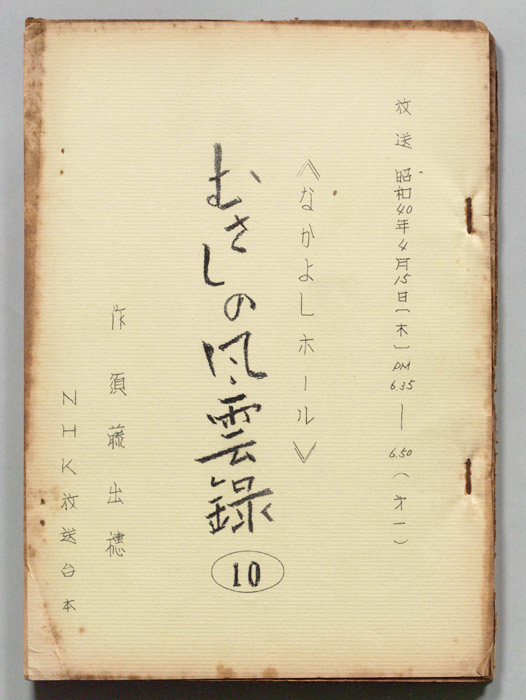 放送 昭和40年4月15日(木)PM 6.35 — 6.50(才一)
《なかよしホール》
むさしの风雲録
10
作 須藤出穂
NHK放送台本